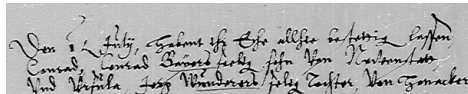 Den 1 July, Habent ihr Ehe allhie bestettig lassen
Conrad, Conrad Bayers seelig sohn Von
Und Ursula Jerg Wunderers selig Tochter, Von Honacker